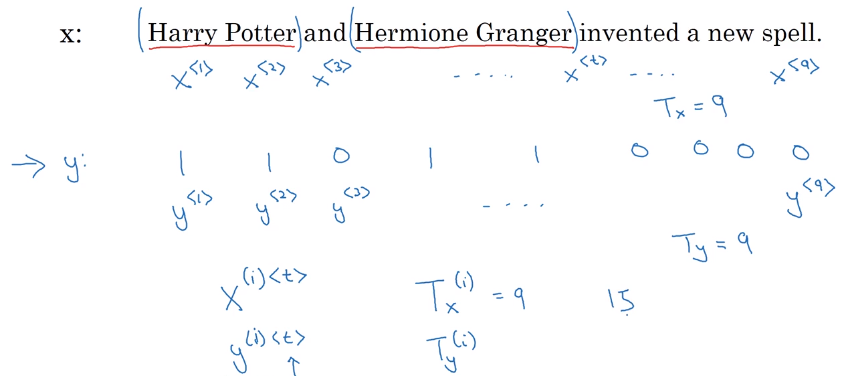 x: (Harry Potter) and (Hermione Granger) invented a new spell.
x<1> x<2> x<3> ..... x<t> .... x<9>
Tx = 9
→ y: 1 1 0 1 1 0 0 0 0
y<1> y<2> y<3> .... y<9>
Ty = 9
X(i)<t> Tx(i) = 9 15
y(i)<t> Ty(i)
↑